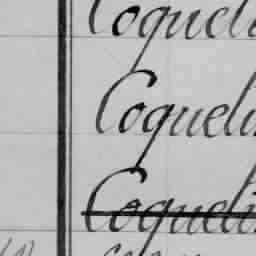 Coqueli
Coqueli
Coqueli